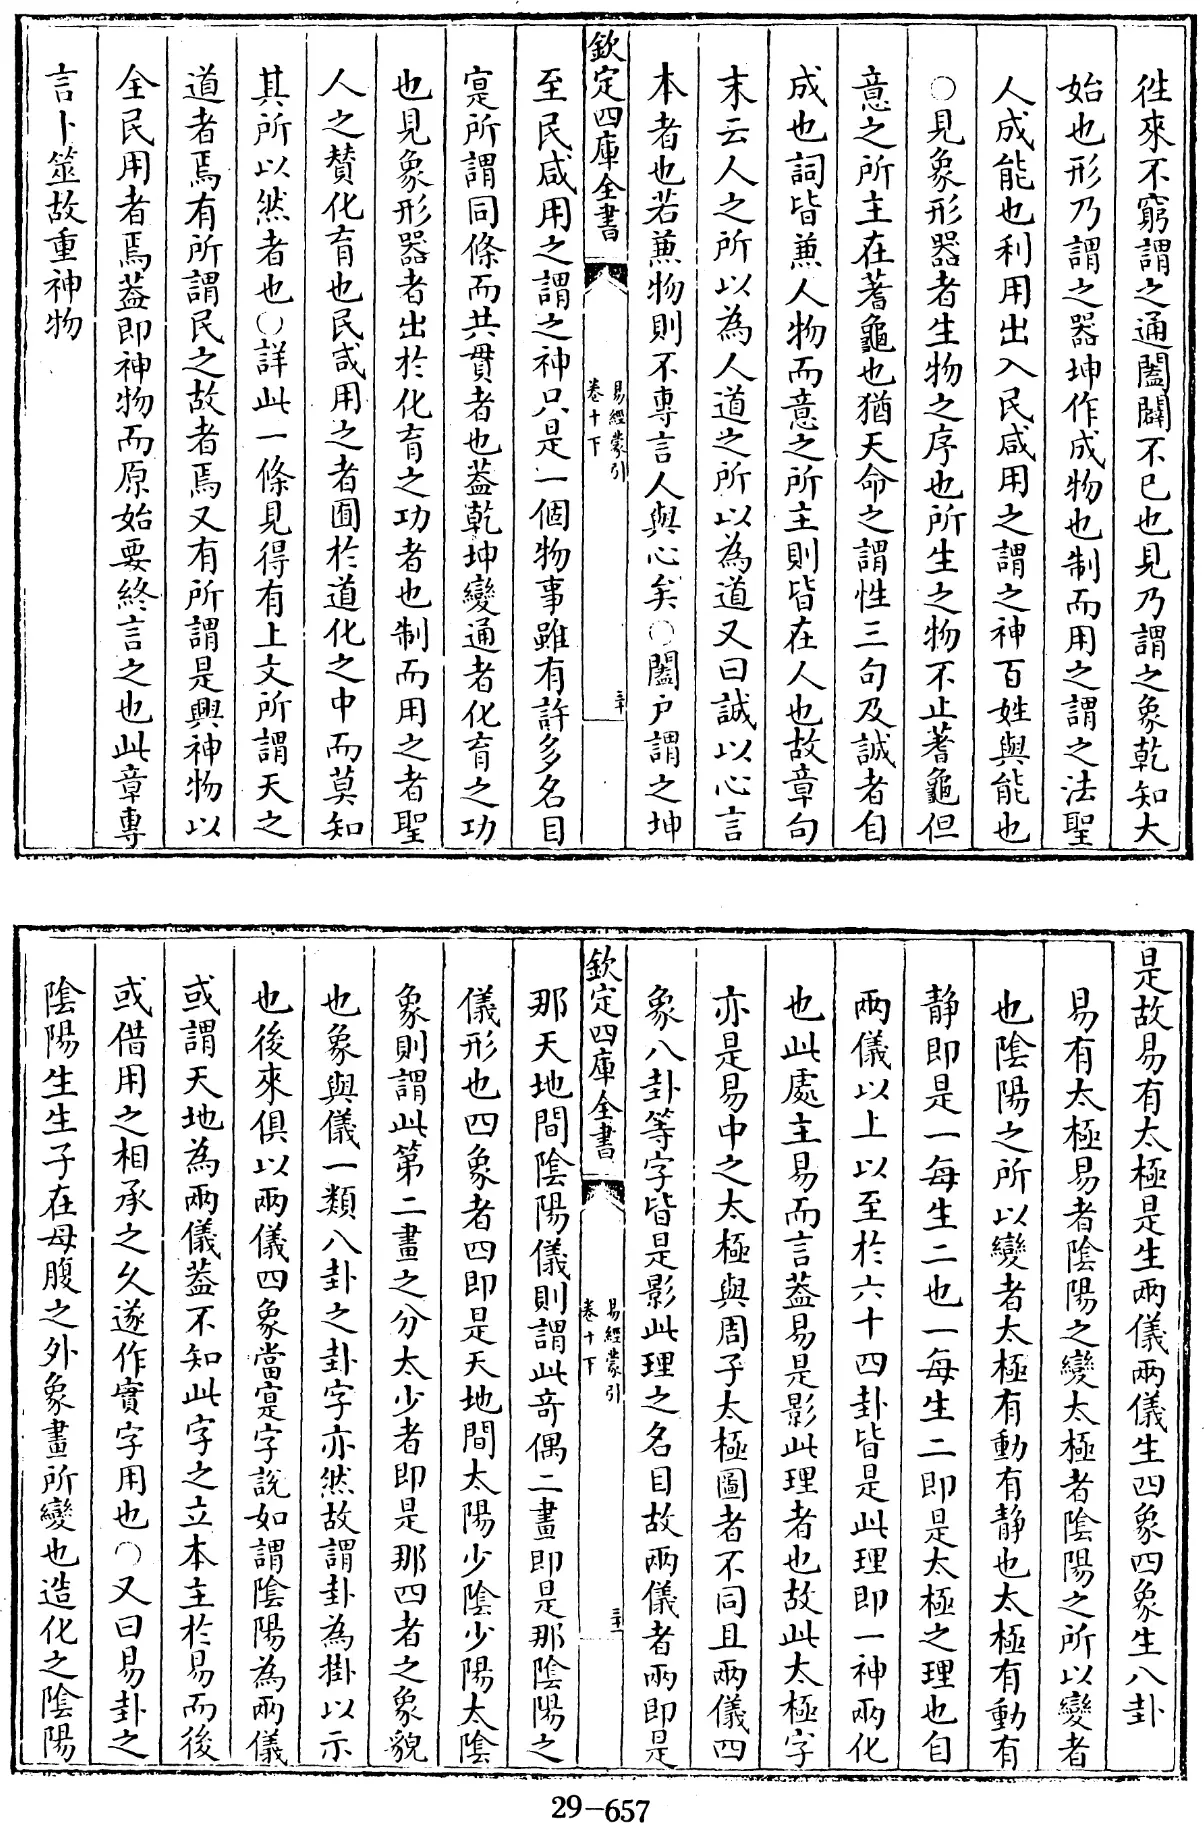 徃來不窮謂之通闔闢不已也見乃謂之象乾知大
始也形乃謂之器坤作成物也制而用之謂之法聖
人成能也利用出入民咸用之謂之神百姓與能也
○見象形器者生物之序也所生之物不止蓍龜但
意之所主在蓍龜也猶天命之謂性三句及誠者自
成也詞皆兼人物而意之所主則皆在人也故章句
末云人之所以為人道之所以為道又曰誠以心言
本者也若兼物則不專言人與心矣○闔户謂之坤
欽定四庫全書
易經蒙引
卷十下
三十
至民咸用之謂之神只是一個物事雖有許多名目
寔所謂同條而共貫者也葢乾坤變通者化育之功
也見象形器者出於化育之功者也制而用之者聖
人之賛化育也民咸用之者囿於道化之中而莫知
其所以然者也○詳此一條見得有上文所謂天之
道者焉有所謂民之故者焉又有所謂是興神物以
全民用者焉葢即神物而原始要終言之也此章專
言卜筮故重神物
是故易有太極是生兩儀兩儀生四象四象生八卦
易有太極易者陰陽之變太極者陰陽之所以變者
也陰陽之所以變者太極有動有静也太極有動有
静即是一每生二也一每生二即是太極之理也自
兩儀以上以至於六十四卦皆是此理即一神兩化
也此處主易而言葢易是影此理者也故此太極字
亦是易中之太極與周子太極圖者不同且兩儀四
象八卦等字皆是影此理之名目故兩儀者兩即是
欽定四庫全書
易經蒙引
卷十下
三十一
那天地間陰陽儀則謂此奇偶二畫即是那陰陽之
儀形也四象者四即是天地間太陽少陰少陽太陰
象則謂此第二畫之分太少者即是那四者之象貌
也象與儀一類八卦之卦字亦然故謂卦為掛以示
也後來俱以兩儀四象當寔字說如謂陰陽為兩儀
或謂天地為兩儀葢不知此字之立本主於易而後
或借用之相承之久遂作實字用也○又曰易卦之
陰陽生生子在母腹之外象畫所變也造化之陰陽
29-657